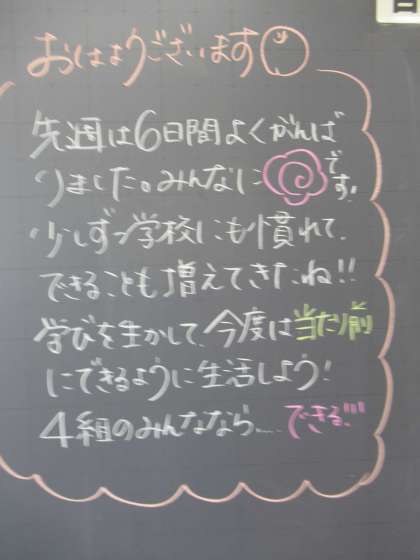 おはようございます
先週は6日間よくがんば
りました。みんなに です!
少しずつ学校にも慣れて、
できることも増えてきたね!!
学びを生かして、今度は当たり前
にできるように生活しよう!
4組のみんななら....できる!!!